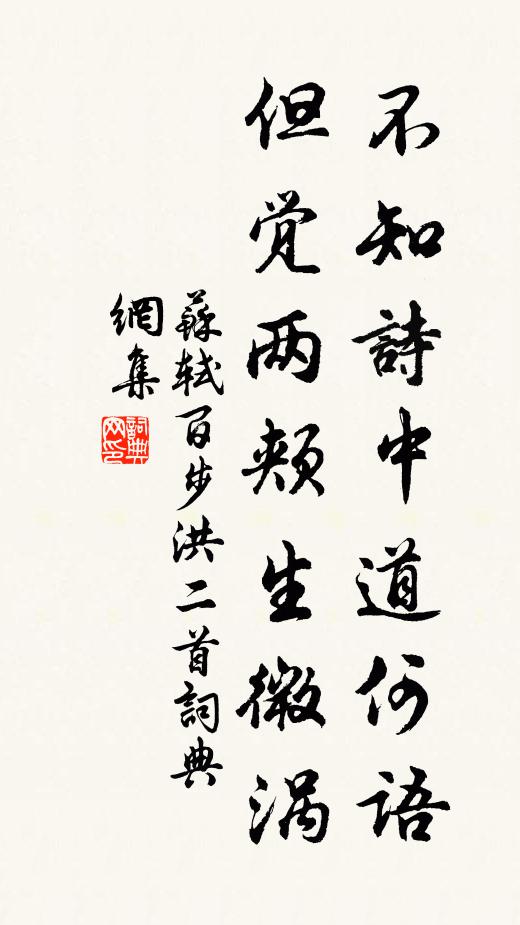 不知詩中道何語
但觉两頰生微涡
蘇軾百步洪二首詞典
網集
詞典网印